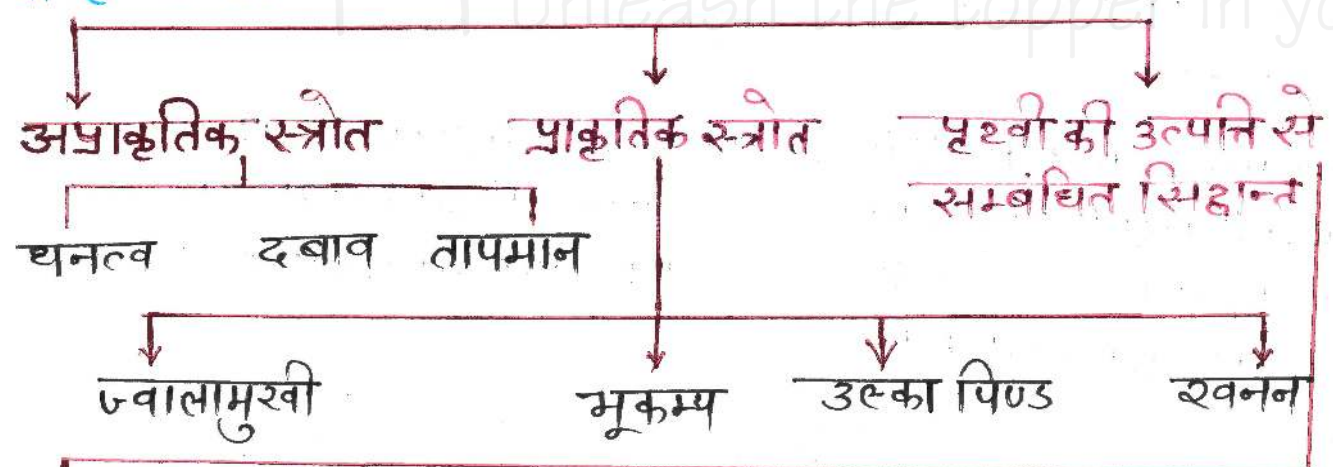 Unleash the topper in yo
अप्राकृतिक स्त्रोत प्राकृतिक स्त्रोत पृथ्वी की उत्पत्ति से
सम्बंधित सिद्धान्त
घनत्व दबाव तापमान
ज्वालामुखी भूकम्प उल्का पिण्ड खनन